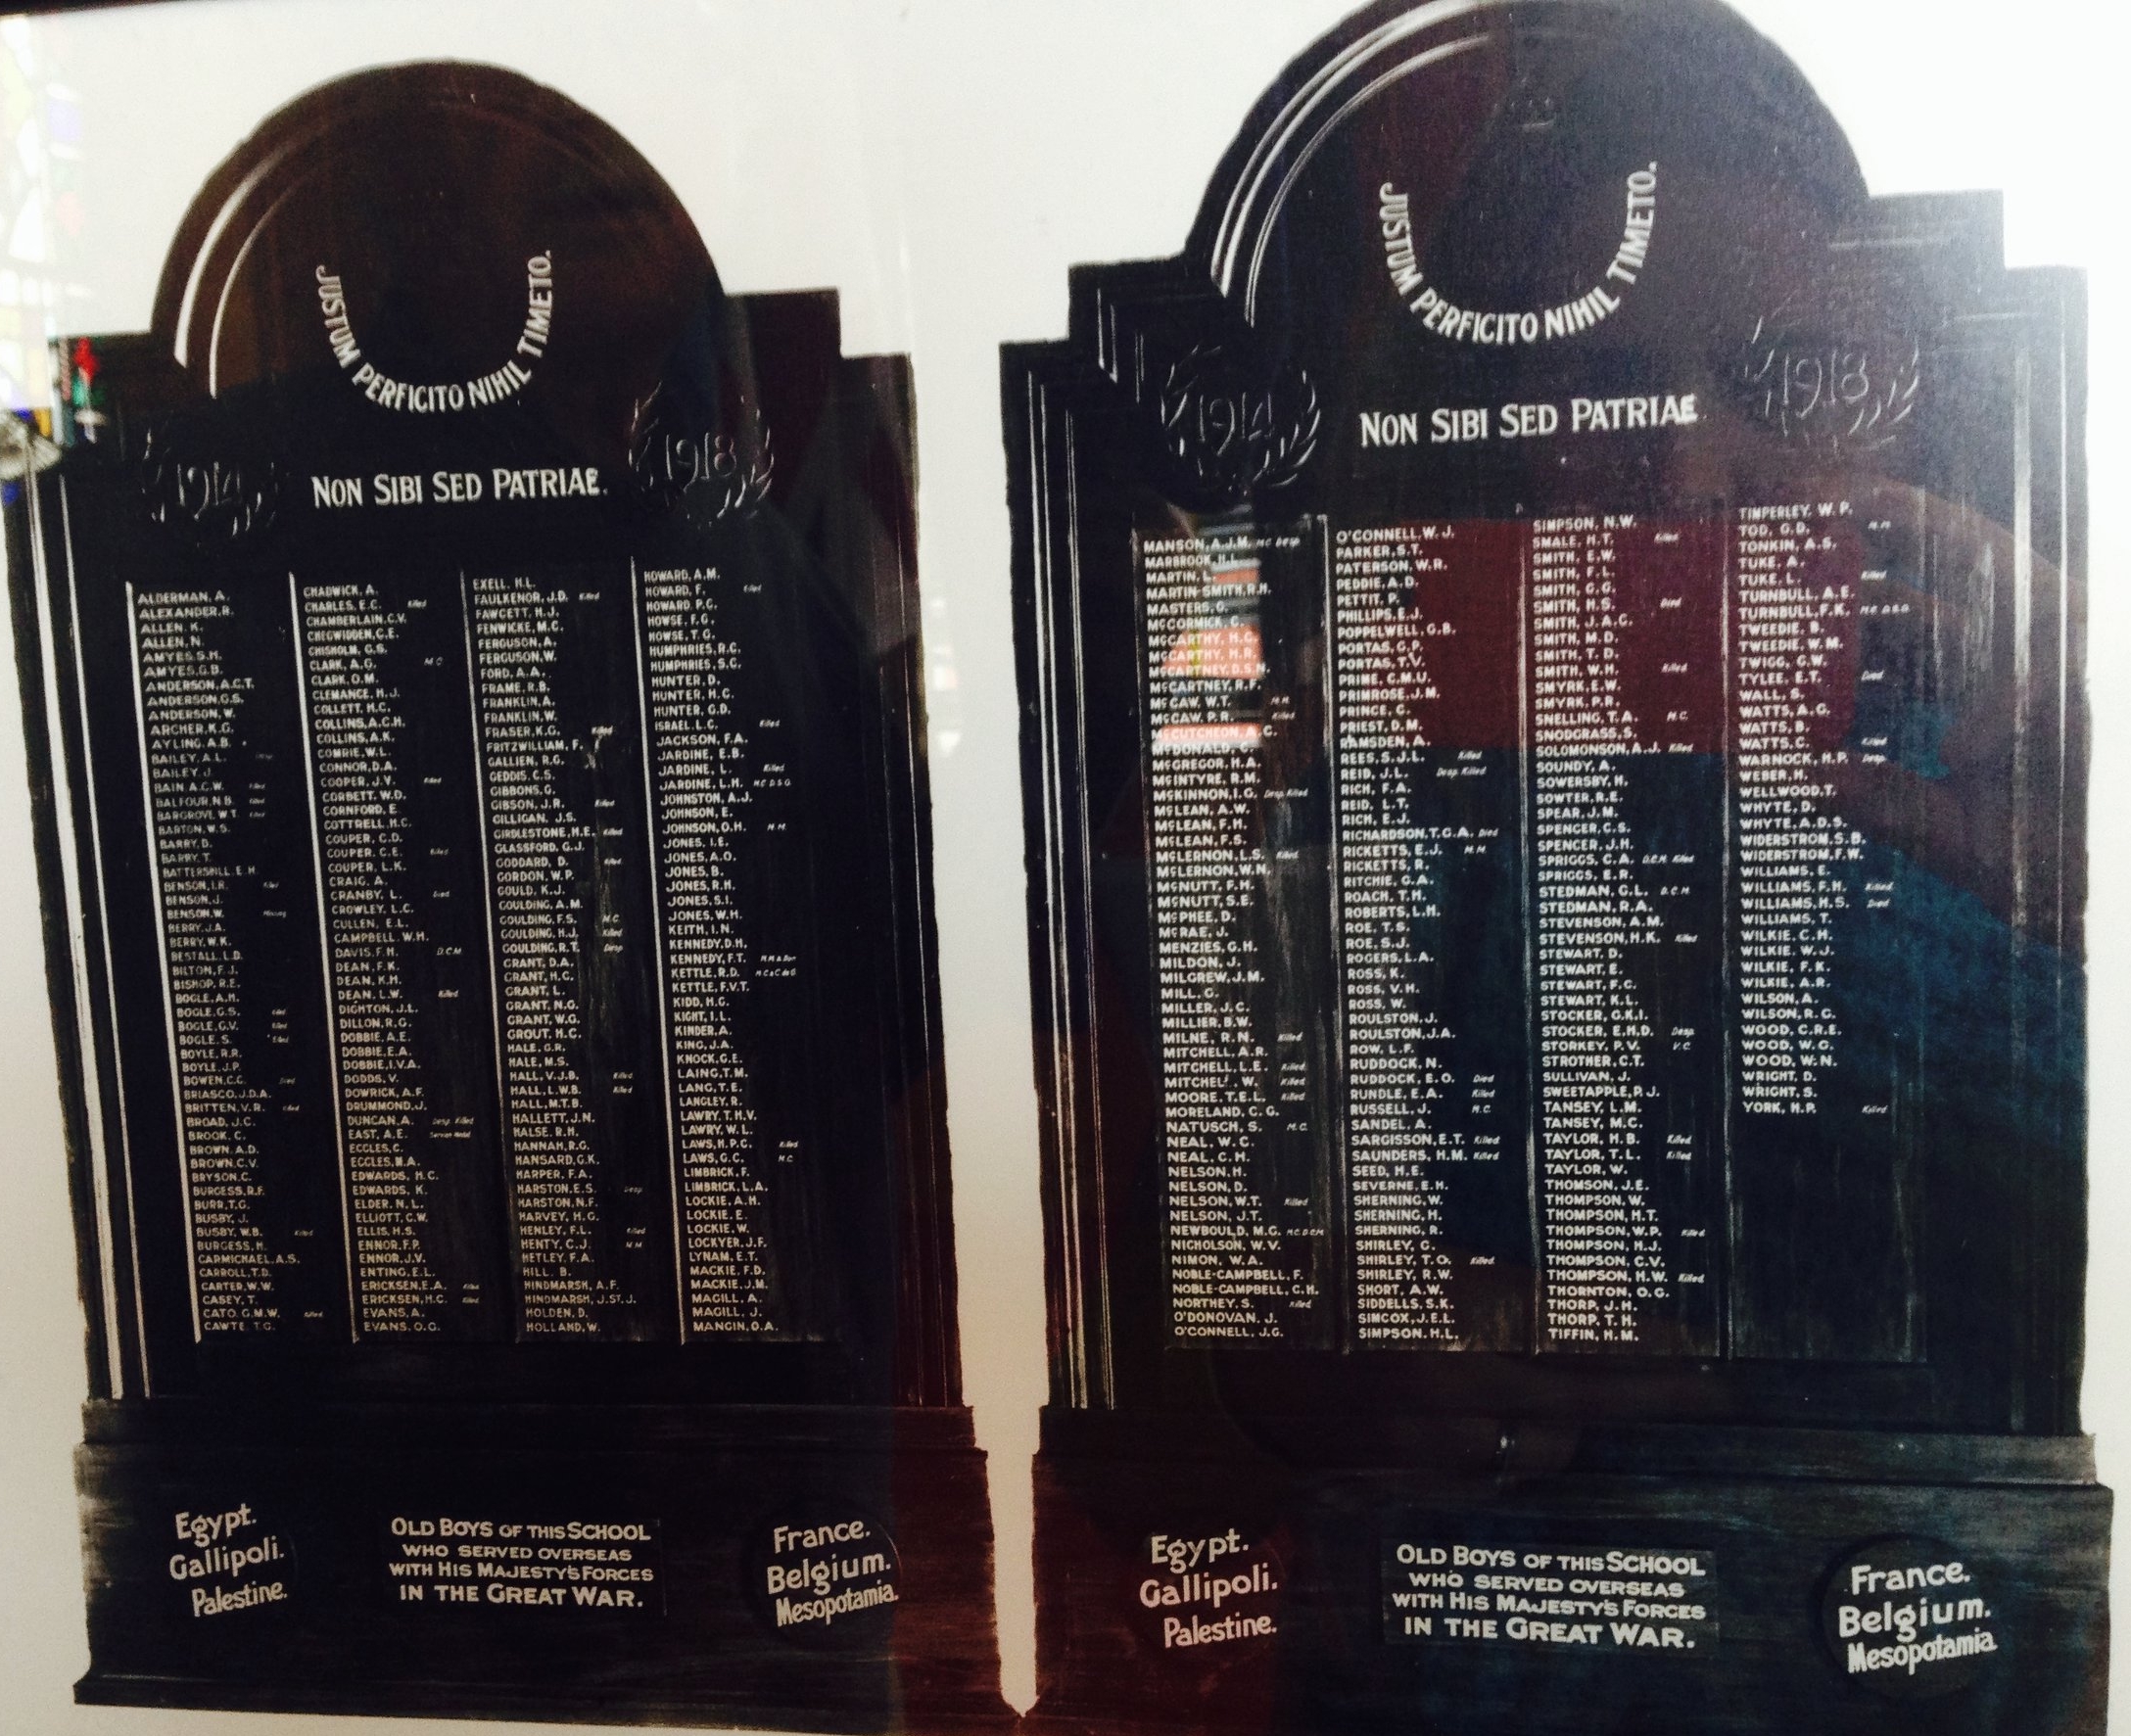 JUSTUM PERFICITO NIHIL TIMETO.
1914
1918
NON SIBI SED PATRIAE.
ALDERMAN, A.
ALEXANDER, R.
ALLEN, K.
ALLEN, N.
AMYES, S.H.
AMYES, G.B.
ANDERSON, A.C.T.
ANDERSON, G.S.
ANDERSON, W.
ARCHER, K.G.
AYLING, A.B.
BAILEY, A.L.
BAILEY, J.
BAIN A.C.W. Killed
BALFOUR, N.B. Killed
BARGROVE, W.T. Killed
BARTON, W.S.
BARRY, D.
BARRY, T.
BATTERSBILL, E.H.
BENSON, I.R. Killed
BENSON, J.
BENSON, W. Missing
BERRY, J.A.
BERRY, W.K.
BESTALL, L.D.
BILTON, F.J.
BISHOP, R.E.
BOGLE, A.H.
BOGLE, G.S. Killed
BOGLE, G.V. Killed
BOGLE, S. Killed
BOYLE, R.R.
BOYLE, J.P.
BOWEN, C.C. Died
BRIASCO, J.D.A.
BRITTEN, V.R. Killed
BROAD, J.C.
BROOK, C.
BROWN, A.D.
BROWN, C.V.
BRYSON, C.
BURGESS, R.F.
BURR, T.G.
BUSBY, J.
BUSBY, W.B. Killed
BURGESS, H.
CARMICHAEL, A.S.
CARROLL, T.D.
CARTER, W.W.
CASEY, T.
CATO, G.M.W. Killed
CAWTE, T.G.
CHADWICK, A.
CHARLES, E.C. Killed
CHAMBERLAIN, C.V.
CHEGWIDDEN, C.E.
CHISHOLM, G.S.
CLARK, A.G. M.C
CLARK, O.M.
CLEMANCE, H.J.
COLLETT, H.C.
COLLINS, A.C.H.
COLLINS, A.K.
COMRIE, W.L.
CONNOR, D.A.
COOPER, J.V. Killed
CORBETT, W.D.
CORNFORD, E
COTTRELL, H.C.
COUPER, C.D.
COUPER, C.E. Killed
COUPER, L.K.
CRAIG, A.
CRANBY, L. Died
CROWLEY, L.C.
CULLEN, E.L.
CAMPBELL, W.H.
DAVIS, F.H. D.C.M
DEAN, F.K.
DEAN, K.H.
DEAN, L.W. Killed
DIGHTON, J.L.
DILLON, R.G.
DOBBIE, A.E.
DOBBIE, E.A.
DOBBIE, I.V.A.
DODDS, V.
DOWRICK, A.F.
DRUMMOND, J.
DUNCAN, A. Desp. Killed
EAST, A.E.
ECCLES, C.
ECCLES, N.A.
EDWARDS, H.C.
EDWARDS, K.
ELDER, N.L.
ELLIOTT, C.W.
ELLIS, H.S.
ENNOR, F.P.
ENNOR, J.V.
ENTING, E.L.
ERICKSEN, E.A. Killed
ERICKSEN, H.C. Killed
EVANS, A.
EVANS, O.G.
EXELL, H.L.
FAULKENOR, J.D. Killed
FAWCETT, H.J.
FENWICKE, M.C.
FERGUSON, A.
FERGUSON, W.
FORD, A.A.
FRAME, R.B.
FRANKLIN, A.
FRANKLIN, W.
FRASER, K.G. Killed
FRITZWILLIAM, F.
GALLIEN, R.G.
GEDDIS, C.S.
GIBBONS, G.
GIBSON, J.R. Killed
GILLIGAN, J.S.
GIRDLESTONE, H.E. Killed
GLASSFORD, G.J.
GODDARD, D. Killed
GORDON, W.P.
GOULD, K.J.
GOULDING, A.M.
GOULDING, F.S. M.C
GOULDING, H.J. Killed
GOULDING, R.T. Desp
GRANT, D.A.
GRANT, H.G.
GRANT, L.
GRANT, N.G.
GRANT, W.G.
GROUT, H.C.
HALE, G.R.
HALE, M.S.
HALL, V.J.B. Killed
HALL, L.W.B. Killed
HALL, M.T.B.
HALLETT, J.N.
HALSE, R.H.
HANNAH, R.G.
HANSARD, G.K.
HARPER, F.A.
HARSTON, E.S. Desp
HARSTON, N.F.
HARVEY, H.G.
HENLEY, F.L. Killed
HENTY, C.J. M.M
HETLEY, F.A.
HILL, B.
HINDMARSH, A.F.
HINDMARSH, J.ST.J.
HOLDEN, D.
HOLLAND, W.
HOWARD, A.M.
HOWARD, F. Killed
HOWARD, P.C.
HOWSE, F.G.
HOWSE, T.G.
HUMPHRIES, R.C.
HUMPHRIES, S.C.
HUNTER, D.
HUNTER, H.C.
HUNTER, G.D.
ISRAEL, L.C. Killed
JACKSON, F.A.
JARDINE, E.B.
JARDINE, L. Killed
JARDINE, L.H. M.C D.S.O
JOHNSTON, A.J.
JOHNSON, E.
JOHNSON, O.H. M.M.
JONES, I.E.
JONES, A.O.
JONES, B.
JONES, R.H.
JONES, S.I.
JONES, W.H.
KEITH, I.N.
KENNEDY, D.H.
KENNEDY, F.T. M.M & Bar
KETTLE, R.D.
KETTLE, F.V.T.
KIDD, H.G.
KIGHT, I.L.
KINDER, A.
KING, J.A.
KNOCK, G.E.
LAING, T.M.
LANG, T.E.
LANGLEY, R.
LAWRY, T.H.V.
LAWRY, W.L.
LAWS, H.P.C. Killed
LAWS, G.C. M.C
LIMBRICK, F.
LIMBRICK, L.A.
LOCKIE, A.H.
LOCKIE, E.
LOCKIE, W.
LOCKYER, J.F.
LYNAM, E.T.
MACKIE, F.D.
MACKIE, J.M.
MAGILL, A.
MAGILL, J.
MANGIN, O.A.
Egypt.
Gallipoli.
Palestine.
OLD BOYS OF THIS SCHOOL
WHO SERVED OVERSEAS
WITH HIS MAJESTY'S FORCES
IN THE GREAT WAR.
France.
Belgium.
Mesopotamia.
JUSTUM PERFICITO NIHIL TIMETO.
1914
1918
NON SIBI SED PATRIAE.
MANSON, A.J.M. M.C Desp.
MARBROOK, H.L.
MARTIN, L.
MARTIN-SMITH, R.H.
MASTERS, G.
McCORMICK, C.
McCARTHY, H.G.
McCARTHY, H.R.
McCARTNEY, D.S.N.
McCARTNEY, R.F.
McCAW, W.T. M.M.
McCAW, P.R. Killed
McCUTCHEON, A.C.
McDONALD, C.
McGREGOR, H.A.
McINTYRE, R.M.
McKINNON, I.G. Desp. Killed
McLEAN, A.W.
McLEAN, F.H.
McLEAN, F.S.
McLERNON, L.S. Killed
McLERNON, W.N.
McNUTT, F.H.
McNUTT, S.E.
McPHEE, D.
McRAE, J.
MENZIES, G.H.
MILDON, J.
MILGREW, J.M.
MILL, G.
MILLER, J.C.
MILLIER, B.W.
MILNE, R.N. Killed
MITCHELL, A.R.
MITCHELL, L.E. Killed
MITCHELL, W. Killed
MOORE, T.E.L. Killed
MORELAND, C.G.
NATUSCH, S. M.C.
NEAL, W.C.
NEAL, C.H.
NELSON, H.
NELSON, D.
NELSON, W.T. Killed
NELSON, J.T.
NEWBOULD, M.G. M.C. D.C.M
NICHOLSON, W.V.
NIMON, W.A.
NOBLE-CAMPBELL, F.
NOBLE-CAMPBELL, C.H.
NORTHEY, S. Killed
O'DONOVAN, J.
O'CONNELL, J.G.
O'CONNELL, W.J.
PARKER, S.T.
PATERSON, W.R.
PEDDIE, A.D.
PETTIT, P.
PHILLIPS, E.J.
POPPELWELL, G.B.
PORTAS, G.P.
PORTAS, T.V.
PRIME, C.M.U.
PRIMROSE, J.M.
PRINCE, G.
PRIEST, D.M.
RAMSDEN, A.
REES, S.J.L. Killed
REID, J.L. Desp. Killed
RICH, F.A.
REID, L.T.
RICH, E.J.
RICHARDSON, T.G.A. Died
RICKETTS, E.J. M.M
RICKETTS, R.
RITCHIE, G.A.
ROACH, T.H.
ROBERTS, L.H.
ROE, T.S.
ROE, S.J.
ROGERS, L.A.
ROSS, K.
ROSS, V.H.
ROSS, W.
ROULSTON, J.
ROULSTON, J.A.
ROW, L.F.
RUDDOCK, N.
RUDDOCK, E.O. Died
RUNDLE, E.A. Killed
RUSSELL, J. M.C.
SANDEL, A.
SARGISSON, E.T. Killed
SAUNDERS, H.M. Killed
SEED, H.E.
SEVERNE, E.H.
SHERNING, W.
SHERNING, H.
SHERNING, R.
SHIRLEY, G.
SHIRLEY, T.O. Killed
SHIRLEY, R.W.
SHORT, A.W.
SIDDELLS, S.K.
SIMCOX, J.E.L.
SIMPSON, H.L.
SIMPSON, N.W.
SMALE, H.T. Killed
SMITH, E.W.
SMITH, F.L.
SMITH, G.G.
SMITH, H.S. Died
SMITH, J.A.C.
SMITH, M.D.
SMITH, T.D.
SMITH, W.H. Killed
SMYRK, E.W.
SMYRK, P.R.
SNELLING, T.A. M.C.
SNODGRASS, S.
SOLOMONSON, A.J. Killed
SOUNDY, A.
SOWERSBY, H.
SOWTER, R.E.
SPEAR, J.M.
SPENCER, C.S.
SPENCER, J.H.
SPRIGGS, C.A. D.C.M. Killed
SPRIGGS, E.R.
STEDMAN, G.L. D.C.M
STEDMAN, R.A.
STEVENSON, A.M.
STEVENSON, H.K. Killed
STEWART, D.
STEWART, E.
STEWART, F.G.
STEWART, K.L.
STOCKER, G.K.I.
STOCKER, E.H.D. Desp.
STORKEY, P.V. V.C
STROTHER, C.T.
SULLIVAN, J.
SWEETAPPLE, P.J.
TANSEY, L.M.
TANSEY, M.C.
TAYLOR, H.B. Killed
TAYLOR, T.L. Killed
TAYLOR, W.
THOMSON, J.E.
THOMPSON, W.
THOMPSON, H.T.
THOMPSON, W.P. Killed
THOMPSON, H.J.
THOMPSON, C.V.
THOMPSON, H.W. Killed
THORNTON, O.G.
THORP, J.H.
THORP, T.H.
TIFFIN, H.M.
TIMPERLEY, W.P.
TOD, G.D. M.M.
TONKIN, A.S.
TUKE, A.
TUKE, L. Killed
TURNBULL, A.E.
TURNBULL, F.K. M.C D.S.O
TWEEDIE, B.
TWEEDIE, W.M.
TWIGG, G.W.
TYLEE, E.T. Died
WALL, S.
WATTS, A.G.
WATTS, B.
WATTS, C. Killed
WARNOCK, H.P. Desp.
WEBER, H.
WELLWOOD, T.
WHYTE, D.
WHYTE, A.D.S.
WIDERSTROM, S.B.
WIDERSTROM, F.W.
WILLIAMS, E.
WILLIAMS, F.H. Killed
WILLIAMS, H.S. Died
WILLIAMS, T.
WILKIE, C.H.
WILKIE, W.J.
WILKIE, F.K.
WILKIE, A.R.
WILSON, A.
WILSON, R.G.
WOOD, C.R.E.
WOOD, W.G.
WOOD, W.N.
WRIGHT, D.
WRIGHT, S.
YORK, H.P. Killed
Egypt.
Gallipoli.
Palestine.
OLD BOYS OF THIS SCHOOL
WHO SERVED OVERSEAS
WITH HIS MAJESTY'S FORCES
IN THE GREAT WAR.
France.
Belgium.
Mesopotamia